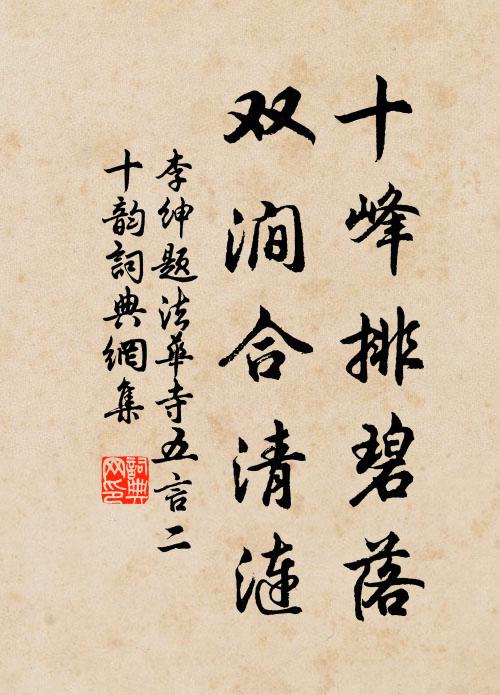 十峰排碧落
双涧合清涟
李绅题法华寺五言二
十韵詞典網集
詞典网印